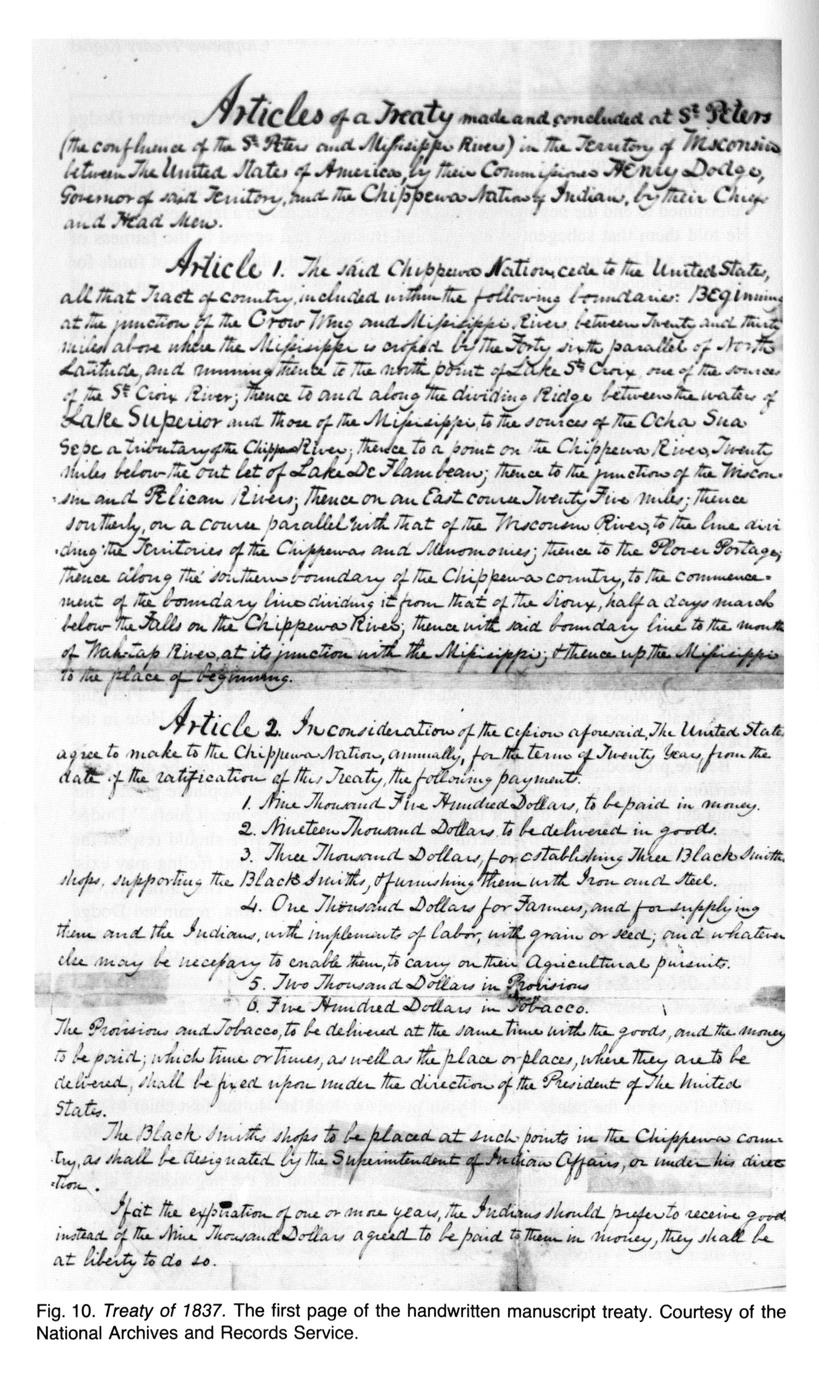 Articles of a Treaty made and concluded at St. Peters
(the confluence of the St. Peters and Missisippi Rivers) in the Territory of Wisconsin
between The United States of America, by their Commissioner Henry Dodge,
Governor of said Territory, and the Chippewa Nation of Indians, by their Chiefs
and Head Men.
Article 1. The said Chippewa Nation, cede to the United States,
all that Tract of country, included within the following boundaries: Beginning
at the junction of the Crow Wing and Missisippi Rivers, between Twenty and thirty
miles above where the Missisippi is crossed by the Forty sixth parallel of North
Latitude, and running thence to the north point of Lake St. Croix, one of the sources
of the St. Croix River; thence to and along the dividing Ridge between the waters of
Lake Superior and those of the Missisippi, to the sources of the Ocha Sua
Sepe a tributary of the Chippewa River; thence to a point on the Chippewa River, Twenty
miles below the out let of Lake De Flambeau; thence to the junction of the Wiscon-
-sin and Pelican Rivers; thence on an East course Twenty Five miles; thence
southerly, on a course parallel with that of the Wisconsin River, to the line divi
-ding the Territories of the Chippewas and Menomonies; thence to the Plover Portage;
thence along the southern boundary of the Chippewa country, to the commence-
ment of the boundary line dividing it from that of the Sioux, half a days march
below the Falls on the Chippewa River; thence with said boundary line to the mouth
of Wah-tap River, at its junction with the Missisippi; & thence up the Missisippi
to the place of beginning.
Article 2. In consideration of the cession aforesaid, The United States
agree to make to the Chippewa Nation, annually, for the term of Twenty Years, from the
date of the ratification of this Treaty, the following payments.
1. Nine Thousand Five Hundred Dollars, to be paid in money.
2. Nineteen Thousand Dollars, to be delivered in goods.
3. Three Thousand Dollars, for establishing Three Black Smiths
shops, supporting the Black Smiths, & furnishing them with Iron and Steel.
4. One Thousand Dollars for Farmers, and for supplying
them and the Indians, with implements of labor, with grain or seed; and whatever
else may be necessary to enable them, to carry on their Agricultural pursuits.
5. Two Thousand Dollars in Provisions
6. Five Hundred Dollars in Tobacco.
The Provisions and Tobacco, to be delivered at the same time with the goods, and the money
to be paid; which time or times, as well as the place or places, where they are to be
delivered, shall be fixed upon under the direction of the President of The United
States.
The Black Smiths shops to be placed at such points in the Chippewa coun-
-try, as shall be designated by the Superintendent of Indian Affairs, or under his direc
-tion.
If at the expiration of one or more years, the Indians should prefer to receive goods
instead of the Nine Thousand Dollars agreed to be paid to them in money, they shall be
at liberty to do so.
Fig. 10. Treaty of 1837. The first page of the handwritten manuscript treaty. Courtesy of the
National Archives and Records Service.